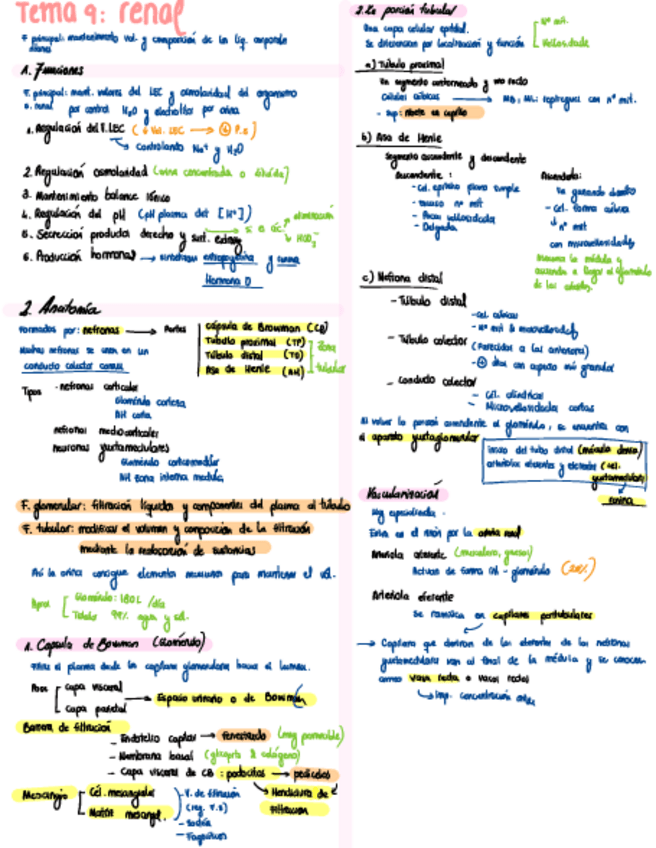 Tema 9: renal
F principal: mantenimiento vol. y composición de los líq. corporales
1. Funciones
F. principal: mant. valores del LEC y osmolaridad del organismo
por control H₂O y electrolitos por orina
1. Regulación del V. LEC (↓ Vol. LEC → P.S)
↳ controlando Na⁺ y H₂O
2. Regulación osmolaridad (orina concentrada o diluida)
3. Mantenimiento balance iónico
4. Regulación del pH (pH plasma det [H⁺])
eliminación
5. Secreción productos derecho y sust.
HCO₃⁻
6. Producción hormonas → eritropoyetina y renina
Hormona D
2. Anatomía
Formados por: nefronas → Partes
Cápsula de Bowman (CB)
Túbulo proximal (TP)
Túbulo distal (TD)
Asa de Henle (AH)
Zona tubular
Muchas nefronas se unen en un
conducto colector común
Tipos
- nefronas corticales
Glomérulo corteza
AH corta
nefronas mediocorticales
neuronas yuxtamedulares
Glomérulo corticomedular
AH zona interna medula
F. glomerular: filtración líquidos y componentes del plasma al túbulo
F. tubular: modificar el volumen y composición de la filtración
mediante la reabsorción de sustancias
Así la orina consigue elementos necesarios para mantener el vol.
Aprox
Glomérulo: 180L /día
Túbulo 99% agua y sal.
1. Capsula de Bowman (Glomérulo)
Filtra el plasma desde los capilares glomerulares hacia el lumen.
Posee
capa visceral
capa parietal
→ Espacio urinario o de Bowman
Barrera de filtración
- Endotelio capilar → fenestrado (muy permeable)
- Membrana basal (glicoprot. & colágeno)
- Capa visceral de CB: podocitos → pedicelos
↳ Hendidura de filtración
Mesangio
Cél. mesangiales
Matriz mesangl.
- F. de filtración
(reg. F.S)
- Sostén
- Fagocitosis
2. La porción tubular
Una capa celular epitelial.
Se diferencian por localización y función
Nº mit.
Vellosidades
a) Túbulo proximal
Un segmento contorneado y uno recto
Células cúbicas → MB, ML: repliegues con nº mit.
- Sup: Borde en cepillo
b) Asa de Henle
Segmento ascendente y descendente
Descendente:
- Cél. epitelio plano simple
- escaso nº mit
- Pocas vellosidades
- Delgada
Ascendente:
Va ganando diámetro
- Cél. forma cúbica
↓ nº mit
con microvellosidades
Atraviesa la médula y
asciende a llegar al glomérulo
c) Nefrona distal
- Túbulo distal
- Cél. cúbicas
- Nº mit & microvellosidades
- Túbulo colector (Parecidas a las anteriores)
- otras con aspecto más granular
- Conducto colector
- Cél. cilíndricas
- Microvellosidades cortas
Al volver la porción ascendente al glomérulo, se encuentra con
el aparato yuxtaglomerular
inicio del tubo distal (mácula densa)
arteriolas aferentes y eferentes (cél. yuxtamedulares)
renina
Vascularización
Muy especializada.
Entra en el riñón por la arteria renal
Arteriola aferente (musculares, gruesas)
Activan de forma cél - glomérulo (20%)
Arteriola eferente
Se ramifica en capilares peritubulares
→ Capilares que derivan de las eferentes de las nefronas
yuxtamedulares van al final de la médula y se conocen
como vasa recta o vasos rectos
↳ Imp. concentración orina